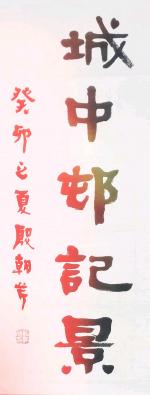 城中邨記景
癸卯之夏殷朝芹